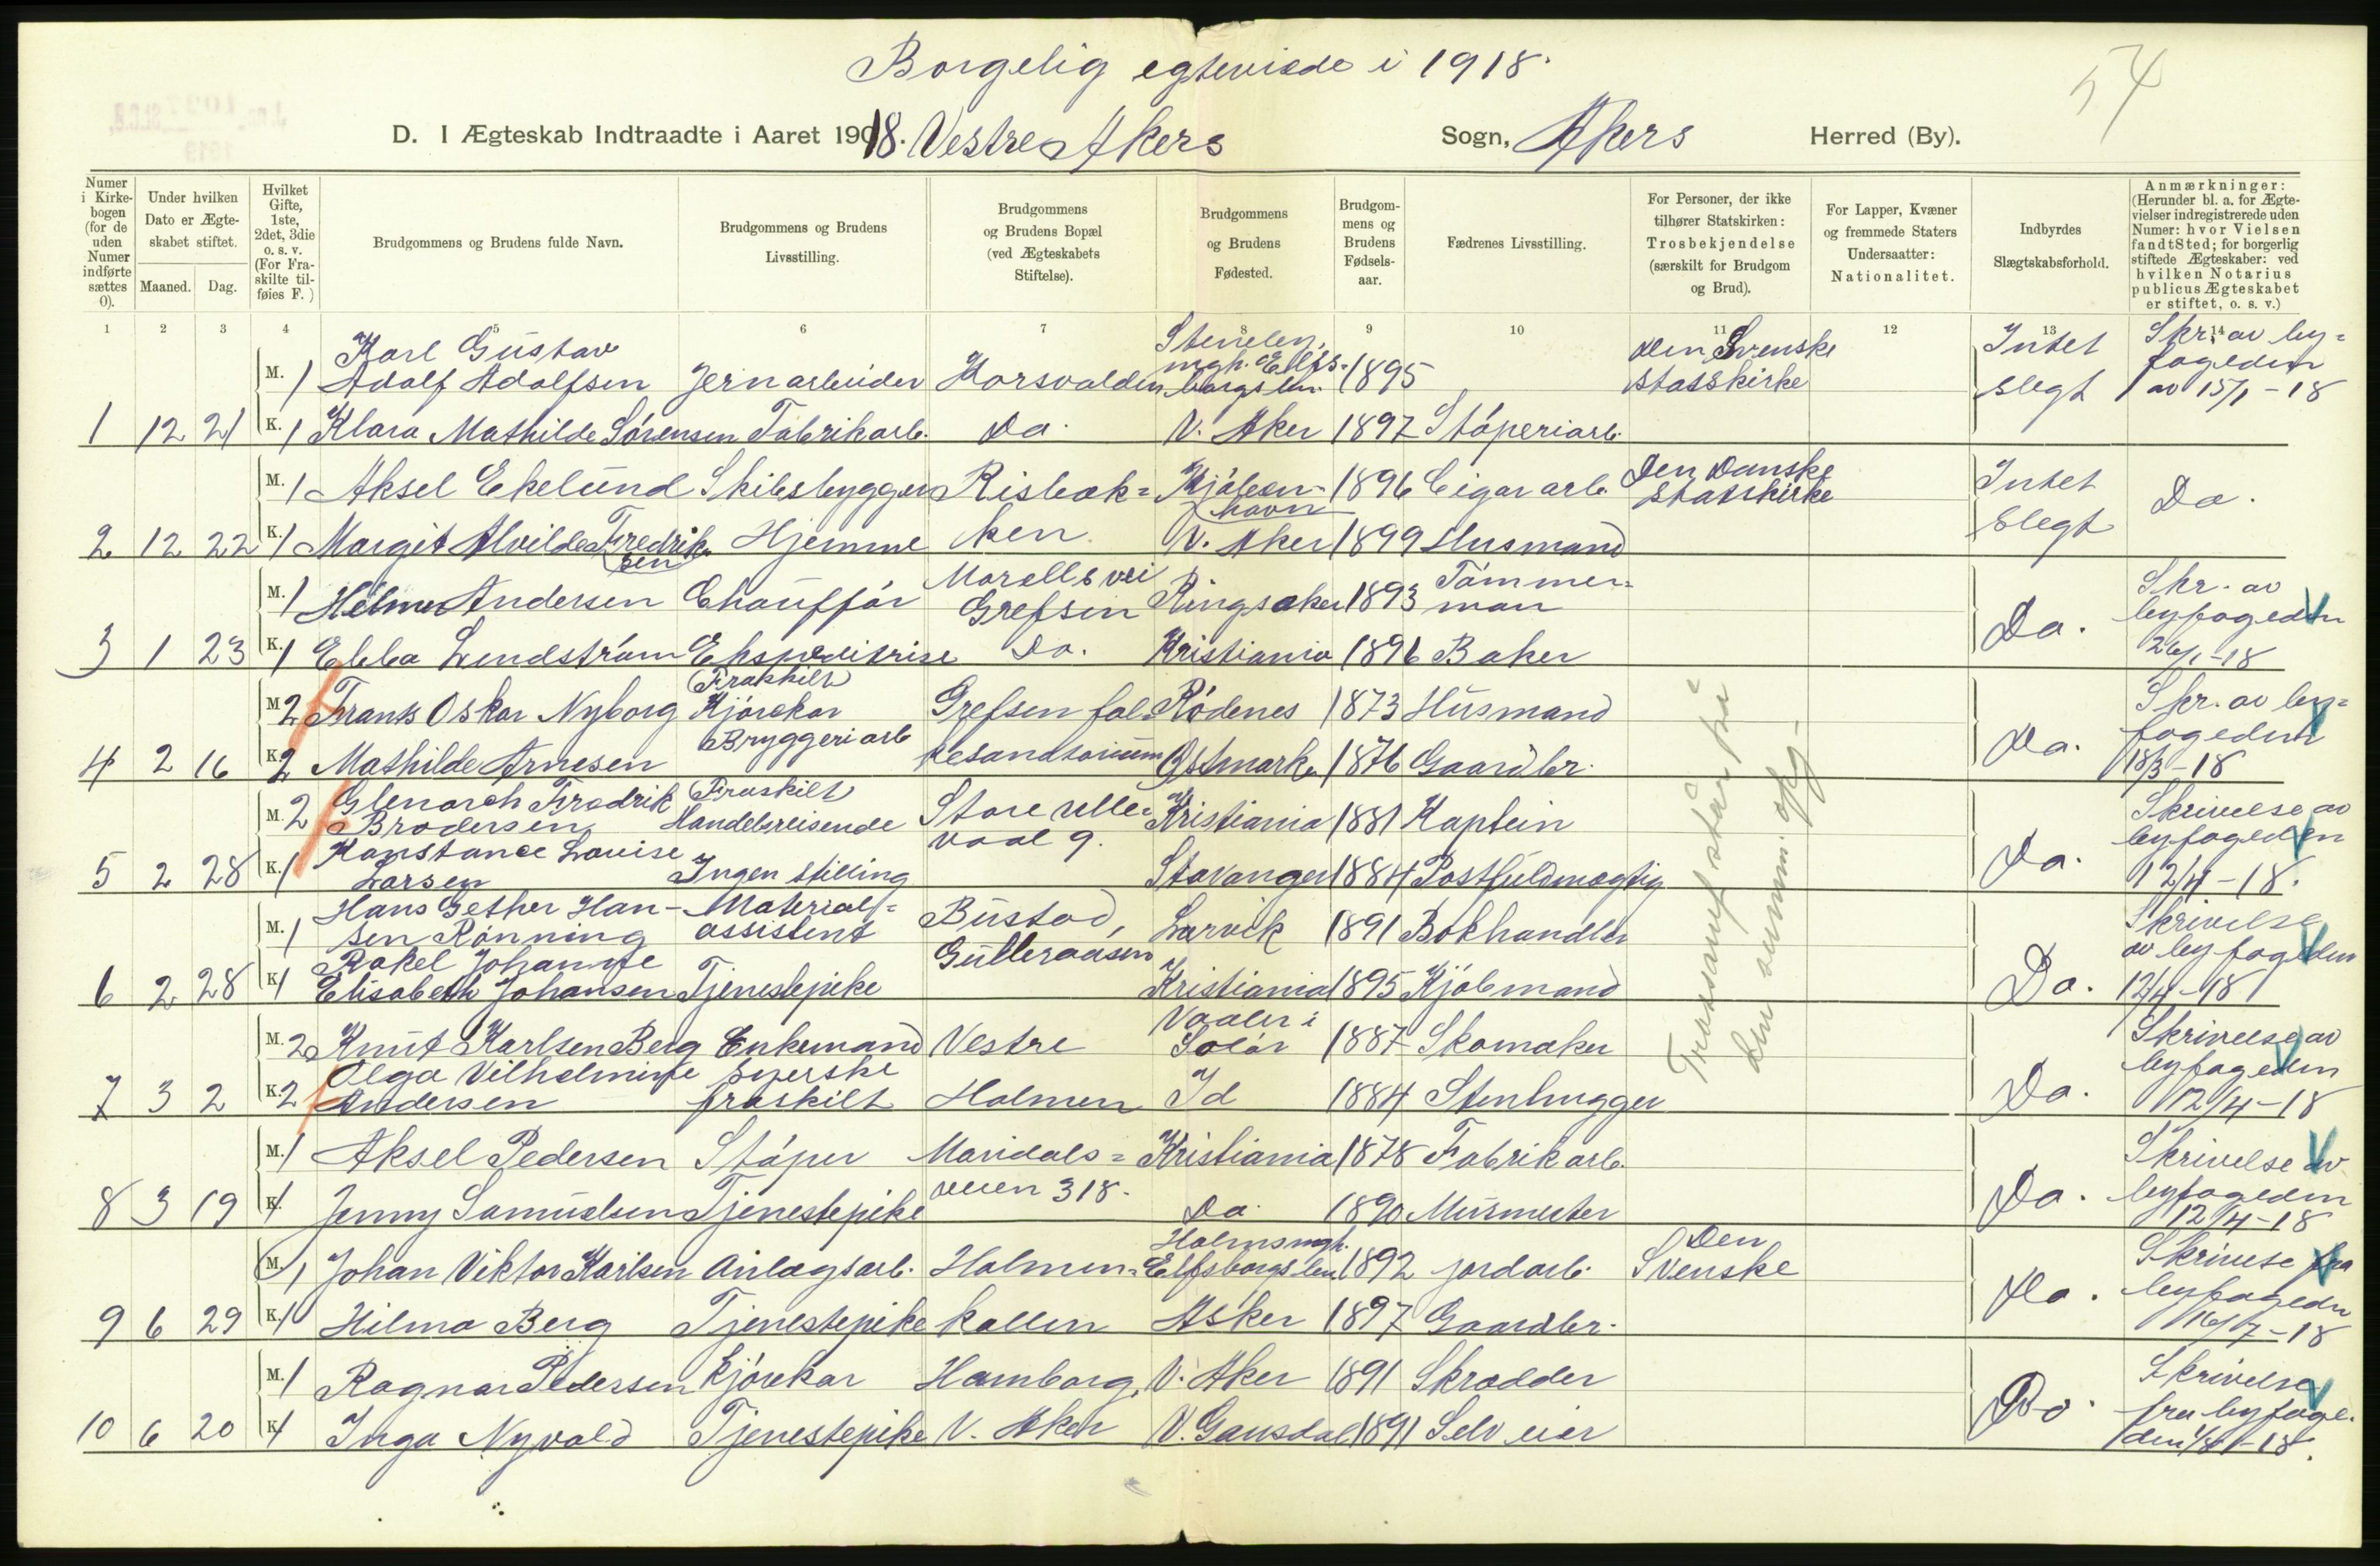 Borgelig egteviede i 1918.
54
D. I Ægteskab Indtraadte i Aaret 1918. Vestre Akers Sogn, Akers Herred (By).
Numer i Kirkebogen (for de uden Numer indførte sættes 0).
Under hvilken Dato er Ægteskabet stiftet.
Maaned. Dag.
Hvilket Gifte, 1ste, 2det, 3die o. s. v. (For Fraskilte tilføies F.)
Brudgommens og Brudens fulde Navn.
Brudgommens og Brudens Livsstilling.
Brudgommens og Brudens Bopæl (ved Ægteskabets Stiftelse).
Brudgommens og Brudens Fødested.
Brudgommens og Brudens Fødselsaar.
Fædrenes Livsstilling.
For Personer, der ikke tilhører Statskirken: Trosbekjendelse (særskilt for Brudgom og Brud).
For Lapper, Kvæner og fremmede Staters Undersaatter: Nationalitet.
Indbyrdes Slægtskabsforhold.
Anmærkninger: (Herunder bl. a. for Ægtevielser indregistrerede uden Numer: hvor Vielsen fandt Sted; for borgerlig stiftede Ægteskaber: ved hvilken Notarius publicus Ægteskabet er stiftet, o. s. v.)
1 2 3 4 5 6 7 8 9 10 11 12 13 14
M. 1 Karl Gustav Adolf Adolfsen Jernarbeider Korsvolden 1895 Den Svenske statskirke Intet slegt Skr. av byfogeden av 15/1-18
1 12 21 K. 1 Klara Mathilde Sørensen Fabrikarb. Do. V. Aker 1897 Støperiarb.
M. 1 Aksel Ekelund Skibsbygger Risbakken Kjøbenhavn 1896 Cigararb. Den Danske Statskirke Intet Slegt Do.
2 12 22 K. 1 Margit Alvilde Fredriksen Hjemme V. Aker 1899 Husmand
M. 1 Hilmer Andersen Chauffør Morells vei Grefsen Ringsaker 1893 Tømmerman Do. Skr. av byfogeden 26/1-18
3 1 23 K. 1 Ebba Lindstrøm Ekspeditrise Do. Kristiania 1896 Baker
M. 2 Frans Oskar Nyborg Fraskilt Kjørekar Grefsen folkesanatorium Rødenes 1873 Husmand Do. Skr. av byfogeden 18/3-18
4 2 16 K. 2 Mathilde Arnesen Bryggeriarb Østmarka 1876 Gaardbr.
M. 2 Glenarch Fredrik Brodersen Fraskilt Handelsreisende Store Ullevaal 9. Kristiania 1881 Kaptein Do. Skrivelse av byfogeden 12/4-18.
5 2 28 K. 1 Konstance Lovise Larsen Ingen stilling Stavanger 1884 Postfuldmægtig
M. 1 Hans Gether Hansen Rønning Materialassistent Bustad, Gulleraasen Larvik 1891 Bokhandler Do. Skrivelse av byfogeden 12/4-18
6 2 28 K. 1 Rakel Johanne Elisabeth Johansen Tjenestepike Kristiania 1895 Kjøbmand
M. 2 Knut Karlsen Berg Enkemand Vestre Holmen Vaaler i Solør 1887 Skomaker Do. Skrivelse av byfogeden 12/4-18
7 3 2 K. 2 Olga Vilhelmine Andersen Syerske fraskilt Id 1884 Stenhugger
M. 1 Aksel Pedersen Støper Maridalsveien 318. Kristiania 1878 Fabrikarb. Do. Skrivelse av byfogeden 12/4-18
8 3 19 K. 1 Jenny Samuelsen Tjenestepike Do. 1890 Murmester
M. 1 Johan Viktor Karlsen Anlægsarb. Holmenkollen Holmsmgh. Elfsborgs len 1892 jordarb. Den Svenske Do. Skrivelse fra byfogeden 16/7-18
9 6 29 K. 1 Hilma Berg Tjenestepike Asker 1897 Gaardbr.
M. 1 Ragnar Pedersen Kjørekar Hamborg, V. Aker V. Aker 1891 Skrædder Do. Skrivelse fra byfogeden
10 6 20 K. 1 Inga Nyvold Tjenestepike V. Gausdal 1891 Selveier
Trossamf. står på
den summ. opg-